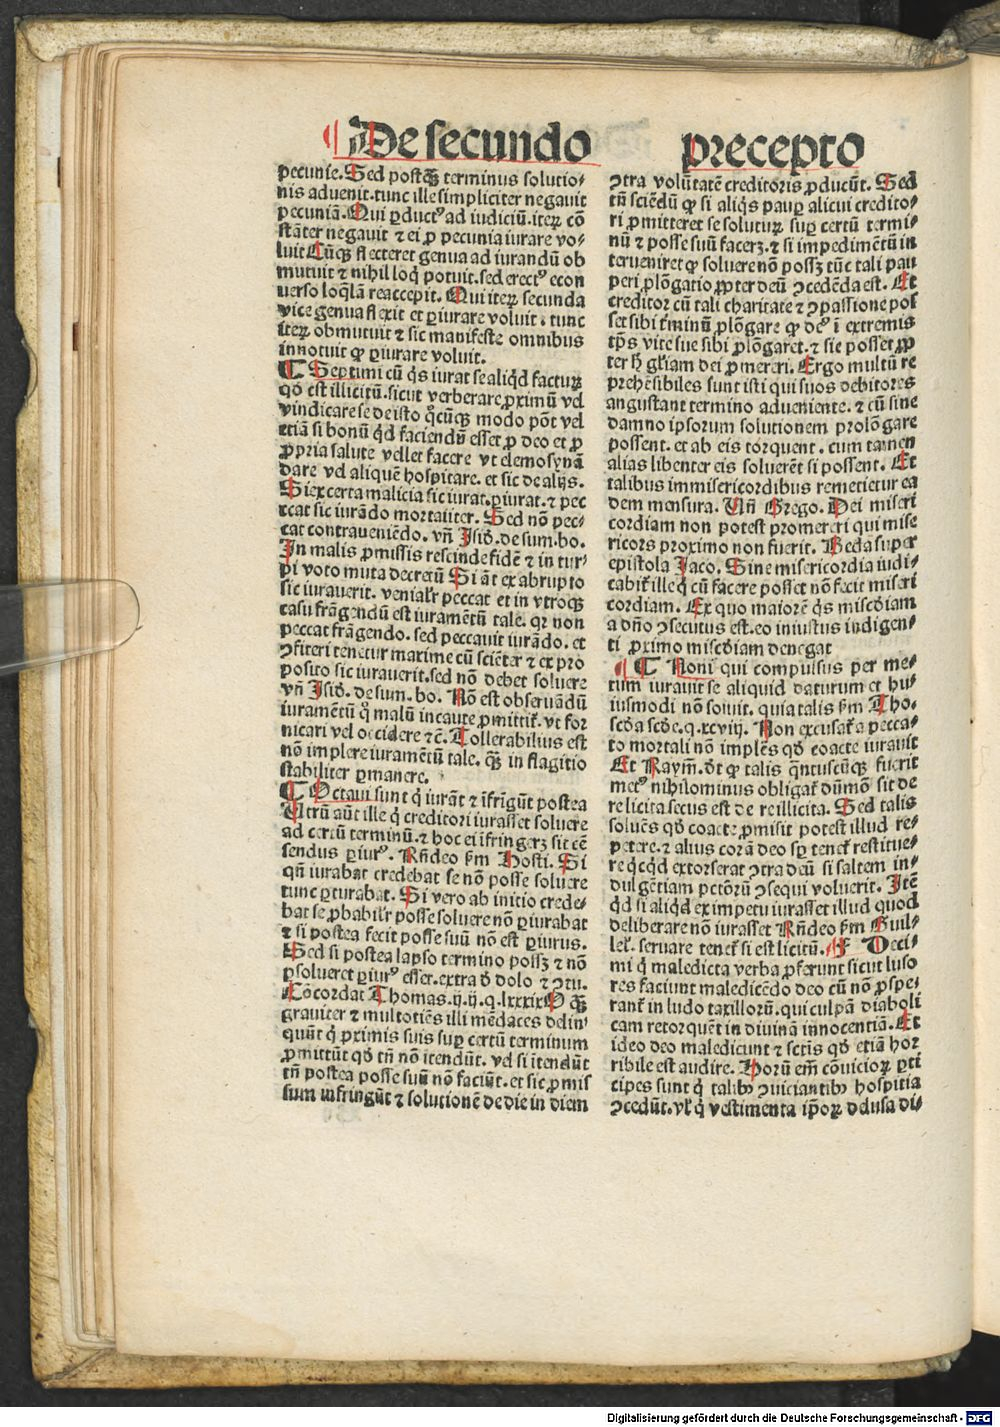 De secundo precepto
pecunie. Sed postq̃ terminus solutio-
nis aduenit. tunc ille simpliciter negauit
pecuniã. Qui ꝑductꝰ ad iudiciũ. iteꝝ cõ
stãter negauit ⁊ ei ꝓ pecunia iurare vo-
luit Cũqꝫ flecteret genua ad iurandũ ob
mutuit ⁊ nihil loq̇ potuit. sed erectꝰ econ
uerso loq̃lã reaccepit. Qui iteꝝ secunda
vice genua flexit et ꝑiurare voluit. tunc
iteꝝ obmutuit ⁊ sic manifeste omnibus
innotuit ꝙ ꝑiurare voluit.
¶ Septimi cũ q̇s iurat se aliq̇d facturꝝ
qð est illicitũ. sicut verberare ꝓximũ vel
vindicare se de isto q̇cũqꝫ modo põt vel
etiã si bonũ q̇d faciendũ esset ꝓ deo et ꝓ
ꝓpria salute vellet facere vt elemosynã
dare vel aliquẽ hospitare. et sic de alijs.
Si ex certa malicia sic iurat. ꝑiurat. ⁊ pec
ccat sic iurãdo mortaliter. Sed nõ pec-
cat contraueniẽdo. vñ Isid. de sum. bo.
In malis ꝓmissis rescinde fidẽ ⁊ in tur-
pi voto muta decretũ Si ãt ex abrupto
sic iurauerit. venialr̃ peccat et in vtroqꝫ
casu frãgendũ est iuramẽtũ tale. qꝛ non
peccat frãgendo. sed peccauit iurãdo. et
ↄfiteri tenetur maxime cũ sciẽter ⁊ ex pro
posito sic iurauerit. sed nõ debet soluere
vñ Isid. de sum. bo. Nõ est obseruãdũ
iuramẽtũ q̇ malũ incaute ꝓmittit̃. vt for
nicari vel occidere ⁊c̃. Tollerabilius est
nõ implere iuramẽtũ tale. q̃ꝫ in flagitio
stabiliter ꝑmanere.
¶ Octaui sunt q̇ iurãt ⁊ ĩfrĩgũt postea
Utrũ aũt ille q̇ creditori iurasset soluere
ad certũ terminũ. ⁊ hoc ei ĩfringerꝫ sit cẽ
sendus ꝑiurꝰ. Rñdeo ẜm Hosti. Si
qñ iurabat credebat se nõ posse soluere
tunc ꝑturabat. Si vero ab initio crede-
bat se ꝓbabilr̃ posse soluere nõ ꝑiurabat
⁊ si postea fecit posse suũ nõ est ꝑiurus.
Sed si postea lapso termino possꝫ ⁊ nõ
ꝑsolueret ꝑiurꝰ esset. extra ð dolo ⁊ ↄtu.
Cõcordat Thomas. ij. ij. q. lxxxix O q̃ꝫ
grauiter ⁊ multotiẽs illi mẽdaces delin-
quũt q̇ ꝓximis suis suꝑ certũ terminum
ꝓmittũt qð tñ nõ ĩtendũt. vel si ĩtendũt
tñ postea posse suũ nõ faciũt. et sic ꝓmis
sum infringũt ⁊ solutionẽ de die in diem
ↄtra volũtatẽ creditoris ꝓducũt. Sed
tñ sciẽdũ ꝙ si aliq̇s pauꝑ alicui credito-
ri ꝓmitteret se soluturꝝ suꝑ certũ termi-
nũ ⁊ posse suũ facerꝫ. ⁊ si impedimẽtũ in
terueniret ꝙ soluere nõ possꝫ tũc tali pau
peri ꝓlõgatio ꝓpter deũ ↄcedẽda est. Et
creditor cũ tali charitate ⁊ ↄpassione pos
set sibi t̃minũ ꝓlõgare ꝙ deꝰ ĩ extremis
tp̃s vite sue sibi ꝓlõgaret. ⁊ sic posset ꝓp
ter h̃ gl̃iam dei ꝓmereri. Ergo multũ re
prehẽsibiles sunt isti qui suos debitores
angustant termino adueniente. ⁊ cũ sine
damno ipsorum solutionem prolõgare
possent. et ab eis torquent. cum tamen
alias libenter eis soluerẽt si possent. Et
talibus immisericordibus remetietur ea
dem mensura. Uñ Grego. Dei miseri
cordiam non potest promereri qui mise
ricors proximo non fuerit. Beda super
epistola Jaco. Sine misericordia iudi-
cabit̃ ille q̇ cũ facere posset nõ fecit miseri
cordiam. Ex quo maiorẽ q̇s miscðiam
a dño ↄsecutus est. eo iniustus indigen-
ti ꝓximo miscðiam denegat
¶ Noni qui compulsus per me-
tum iurauit se aliquid daturum et hu-
iusmodi nõ soluit. quia talis ẜm Tho.
scða scðe. q. xcviij. Non excusat̃ a pecca-
to mortali nõ implẽs qð coacte iurauit
Et Raym̃. ðt ꝙ talis q̃ntũcũqꝫ fuerit
metꝰ nihilominus obligat̃ dũmõ sit de
re licita secus est de re illicita. Sed talis
soluẽs qð coacte ꝓmisit potest illud re-
petere. ⁊ alius corã deo sꝑ tenet̃ restitue-
re q̇cq̇d extorserat ↄtra deũ si saltem in-
dulgẽtiam pctõrũ ↄsequi voluerit. Itẽ
q̇d si aliq̇d ex impetu iurasset illud quod
deliberare nõ iurasset Rñdeo ẜm Guil-
lel̃. seruare tenet̃ si est licitũ. ¶ Deci-
mi q̇ maledicta verba ꝓferunt sicut luso
res faciunt maledicẽdo deo cũ nõ ꝓspe-
rant̃ in ludo taxillorũ. qui culpã diaboli
cam retorquẽt in diuinã innocentiã. Et
ideo deo maledicunt ⁊ sctis qð etiã hor
ribile est audire. Horũ em̃ cõuicioꝝ ꝑti
cipes sunt q̇ talibꝫ ↄuiciantibꝫ hospitia
ↄcedũt. vl̃ q̇ vestimenta ip̃oꝝ ð elusa di-
Digitalisierung gefördert durch die Deutsche Forschungsgemeinschaft - DFG